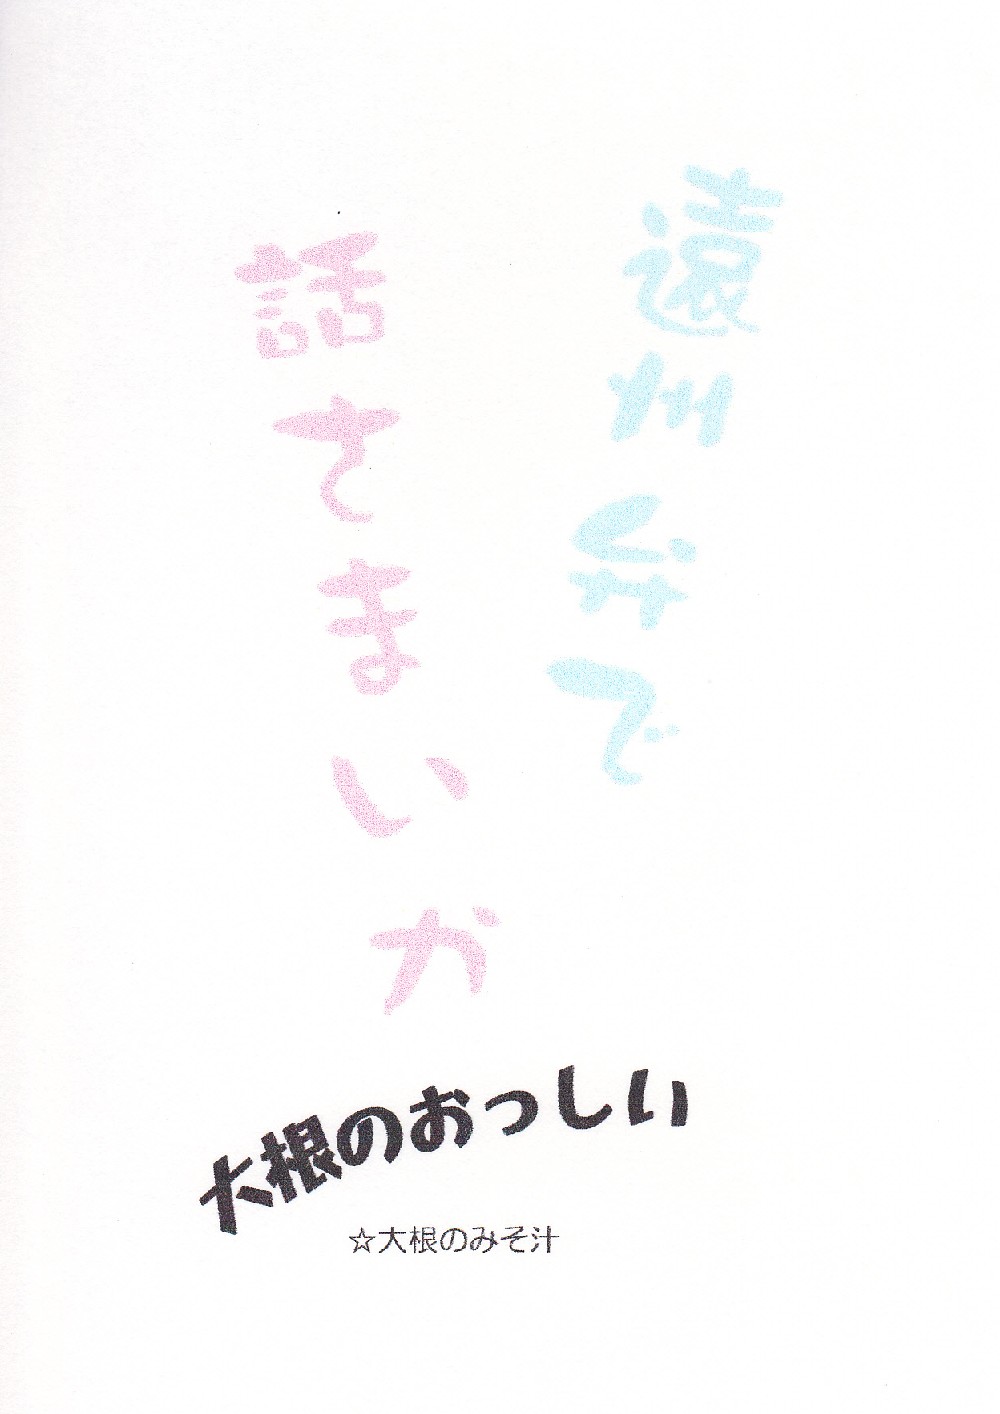 遠州弁で
話さまいか
大根のおっしい
☆大根のみそ汁